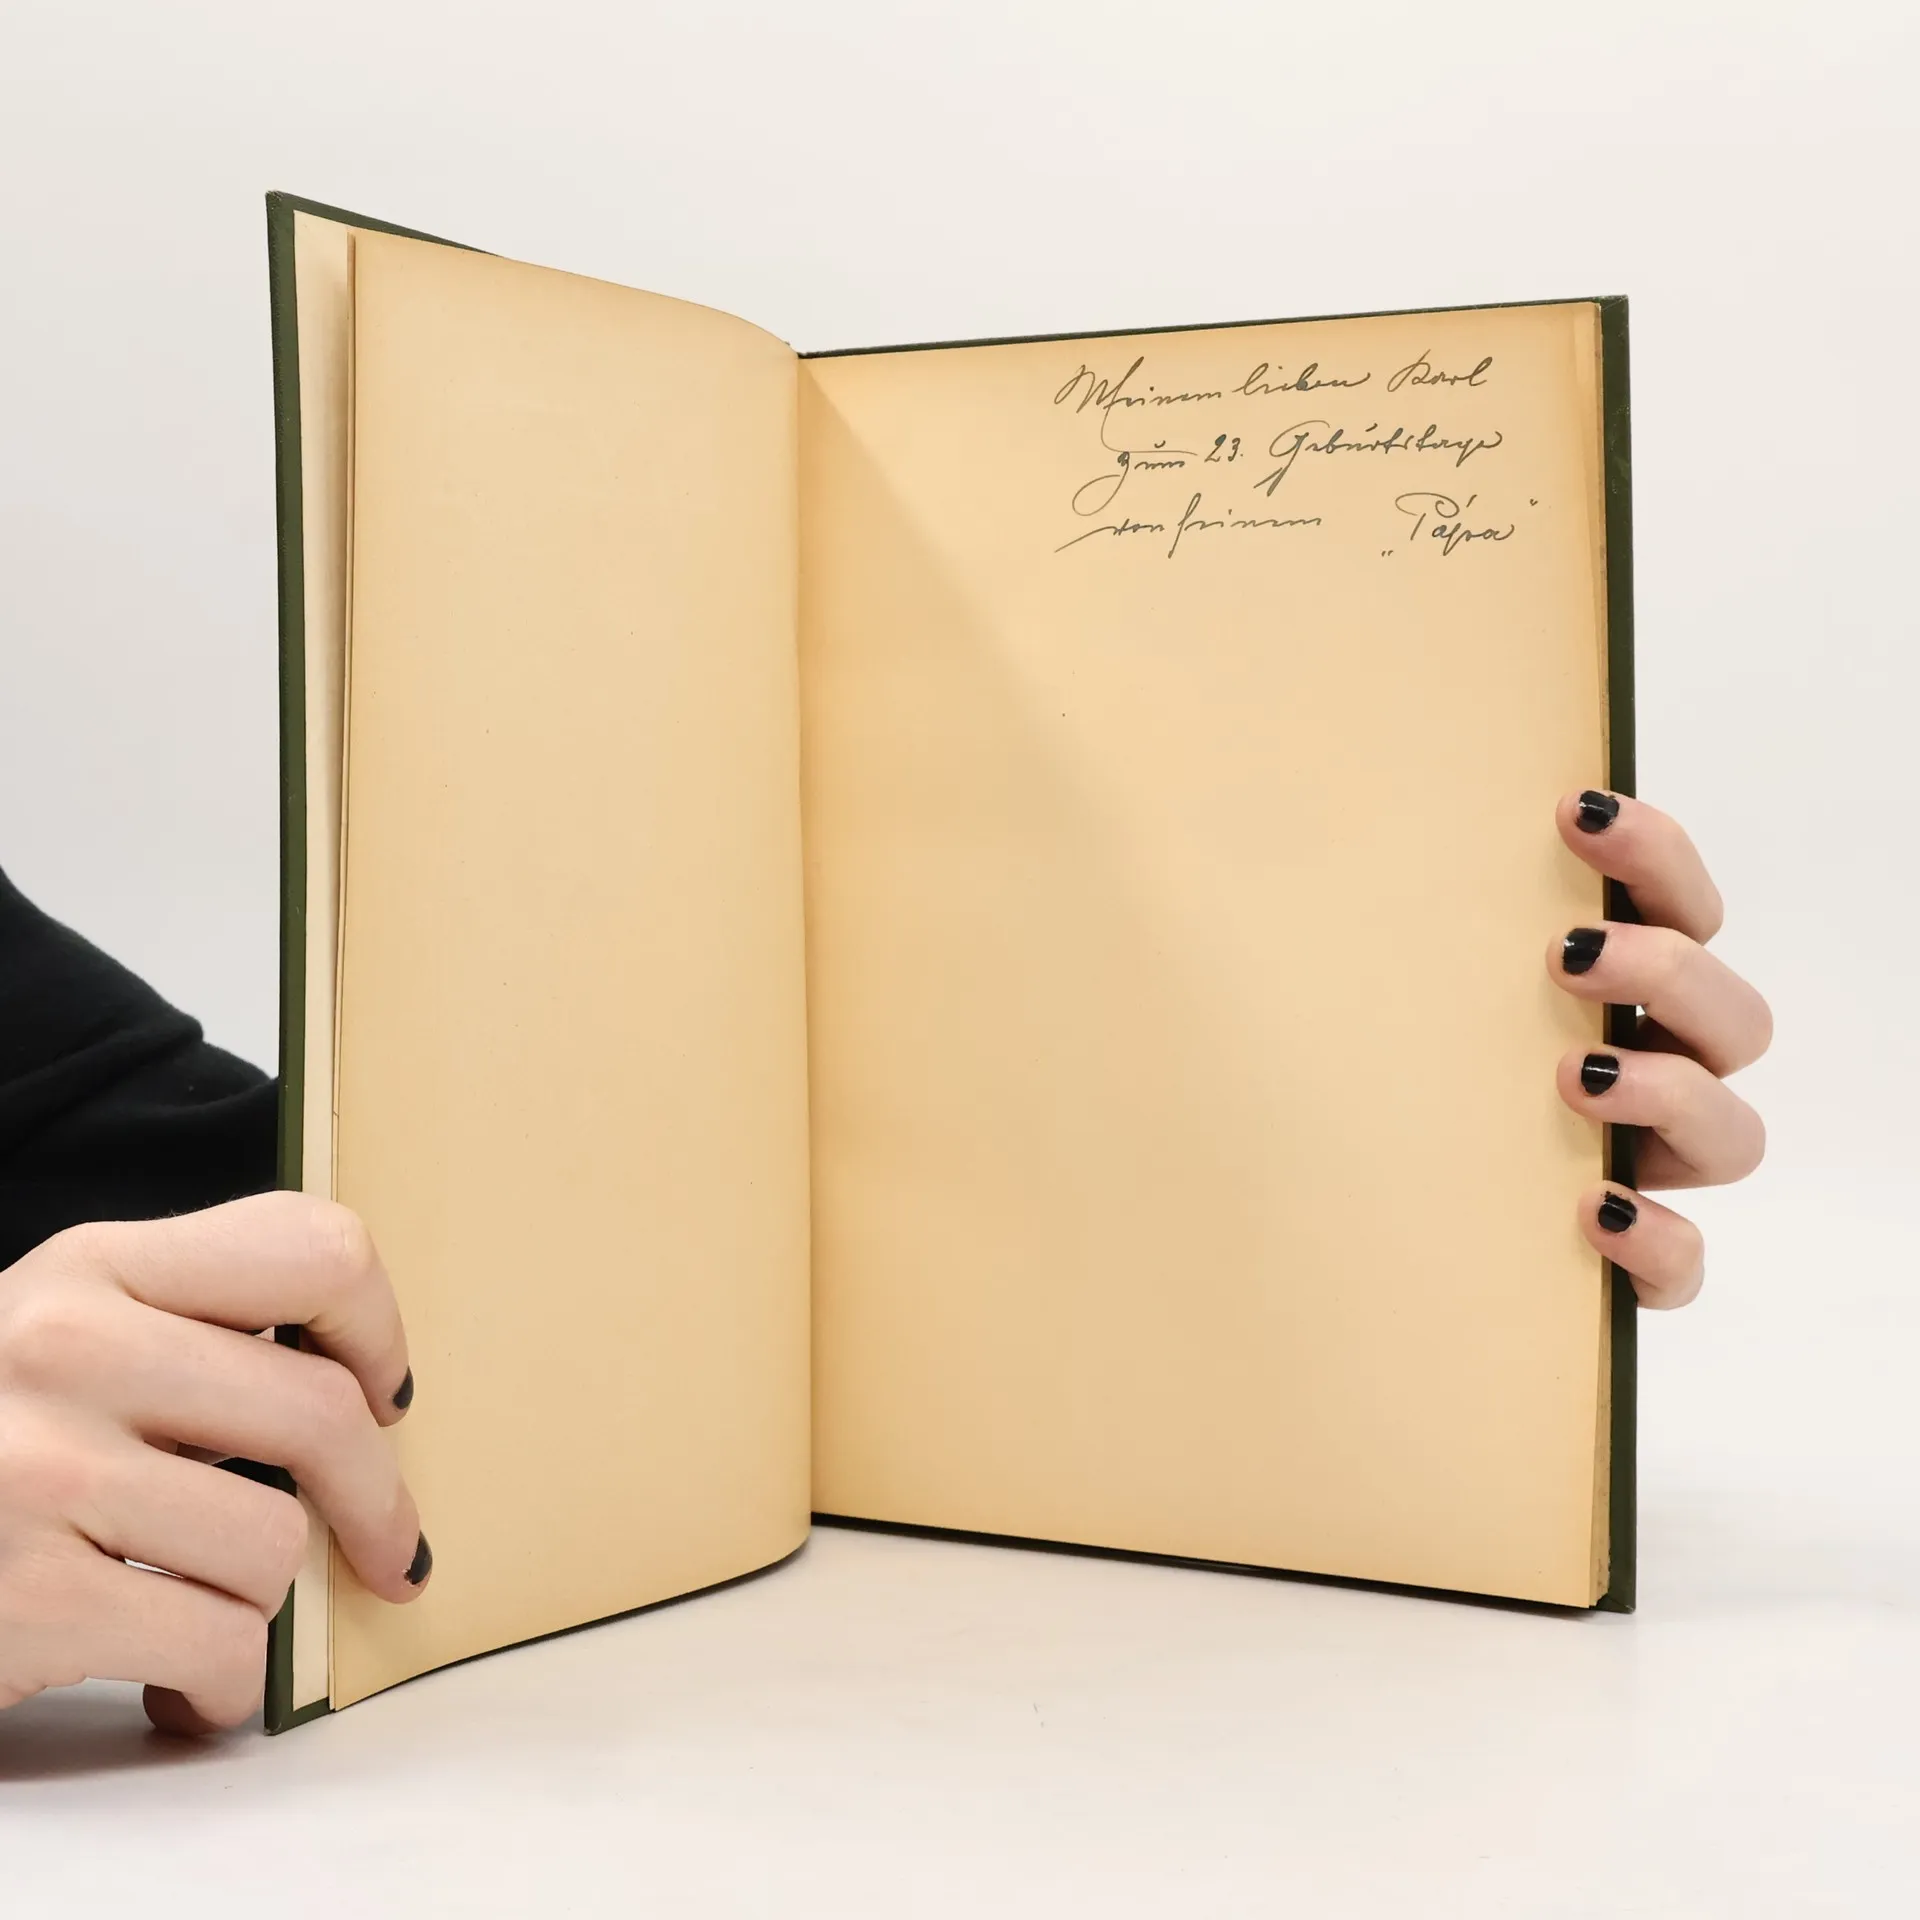 Meinem lieben Karl
zum 23. Geburtstage
von seinem „Papa“